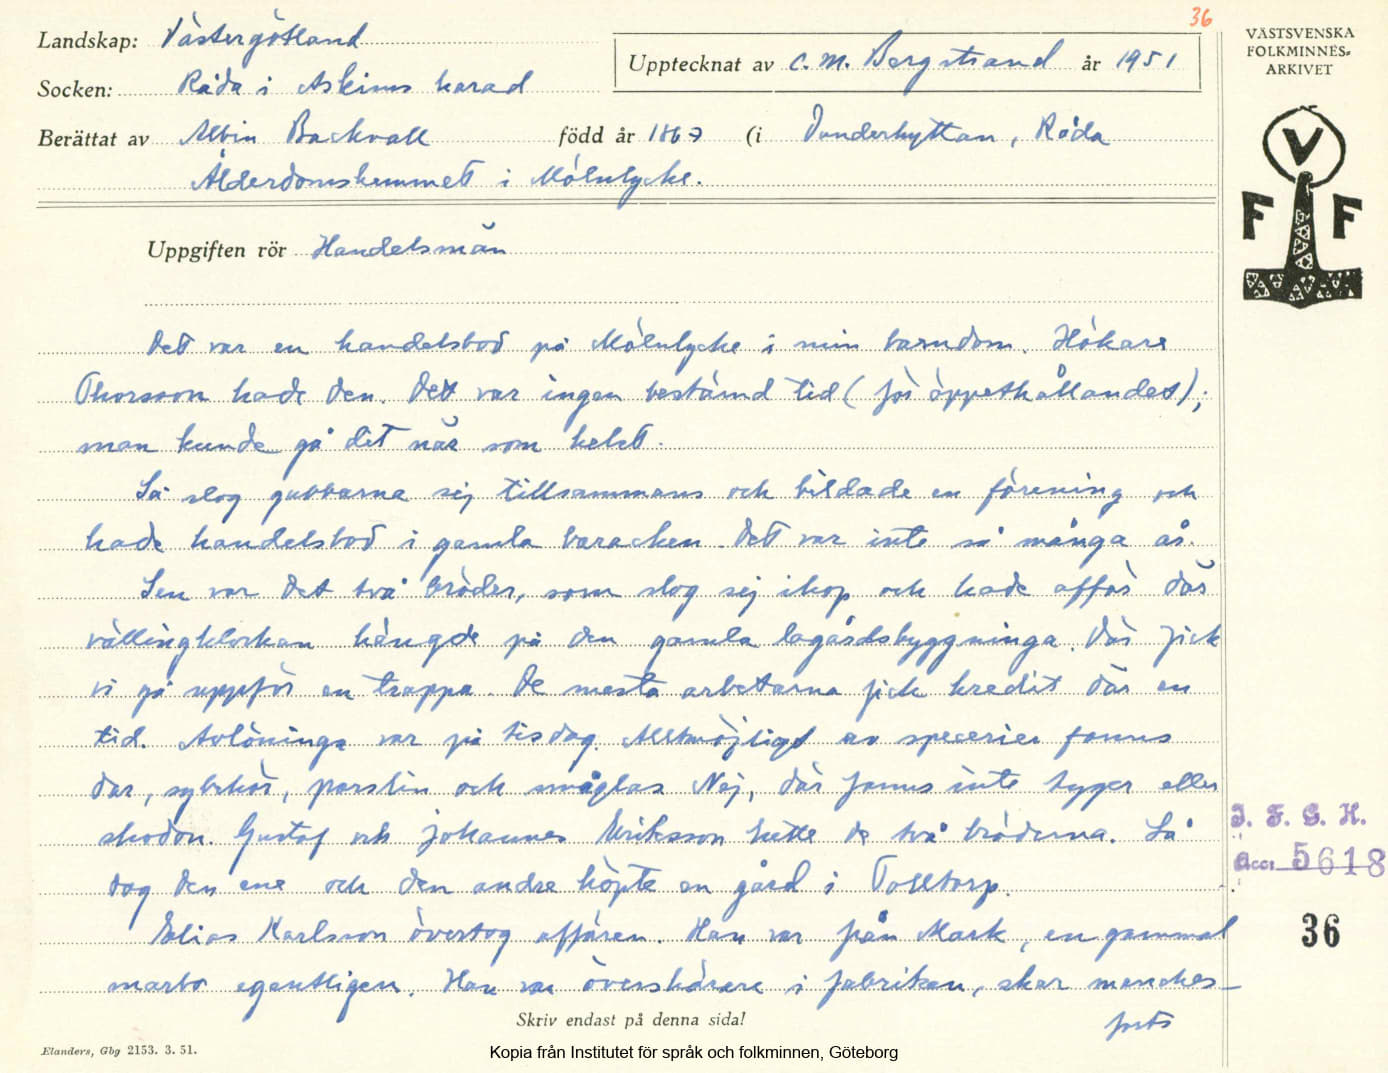 36
Landskap: Västergötland
Upptecknat av C. M. Bergstrand år 1951
Socken: Råda i Askims härad
Berättat av Albin Backvall född år 1867 (i Dunderhyttan, Råda
Ålderdomshemmet i Mölnlycke.
VÄSTSVENSKA
FOLKMINNES-
ARKIVET
V
F F
Uppgiften rör Handelsmän
Det var en handelsbod på Mölnlycke i min barndom. Hökare
Thorsson hade den. Det var ingen bestämd tid (för öppethållandet);
man kunde gå dit när som helst.
Så slog gubbarna sig tillsammans och bildade en förening och
hade handelsbod i gamla baracken. Det var inte så många år.
Sen var det två bröder, som slog sej ihop och hade affär där
vällingklockan hängde på den gamla lagårdsbyggninga. Där fick
vi gå uppför en trappa. De mesta arbetarna fick kredit där en
tid. Avlöninga var på tisdag. Allt möjligt av specerier fanns
där, sybehör, porslin och småglas. Nej, där fanns inte tyger eller
skodon. Gustaf och Johannes Eriksson hette de två bröderna. Så
dog den ene och den andre köpte en gård i Tolltorp.
Elias Karlsson övertog affären. Han var från Mark, en gammal
marbo egentligen. Han var överskärare i fabriken, skar manches-
forts
J. F. G. H.
acc: 5618
36
Skriv endast på denna sida!
Elanders, Gbg 2153. 3. 51.
Kopia från Institutet för språk och folkminnen, Göteborg